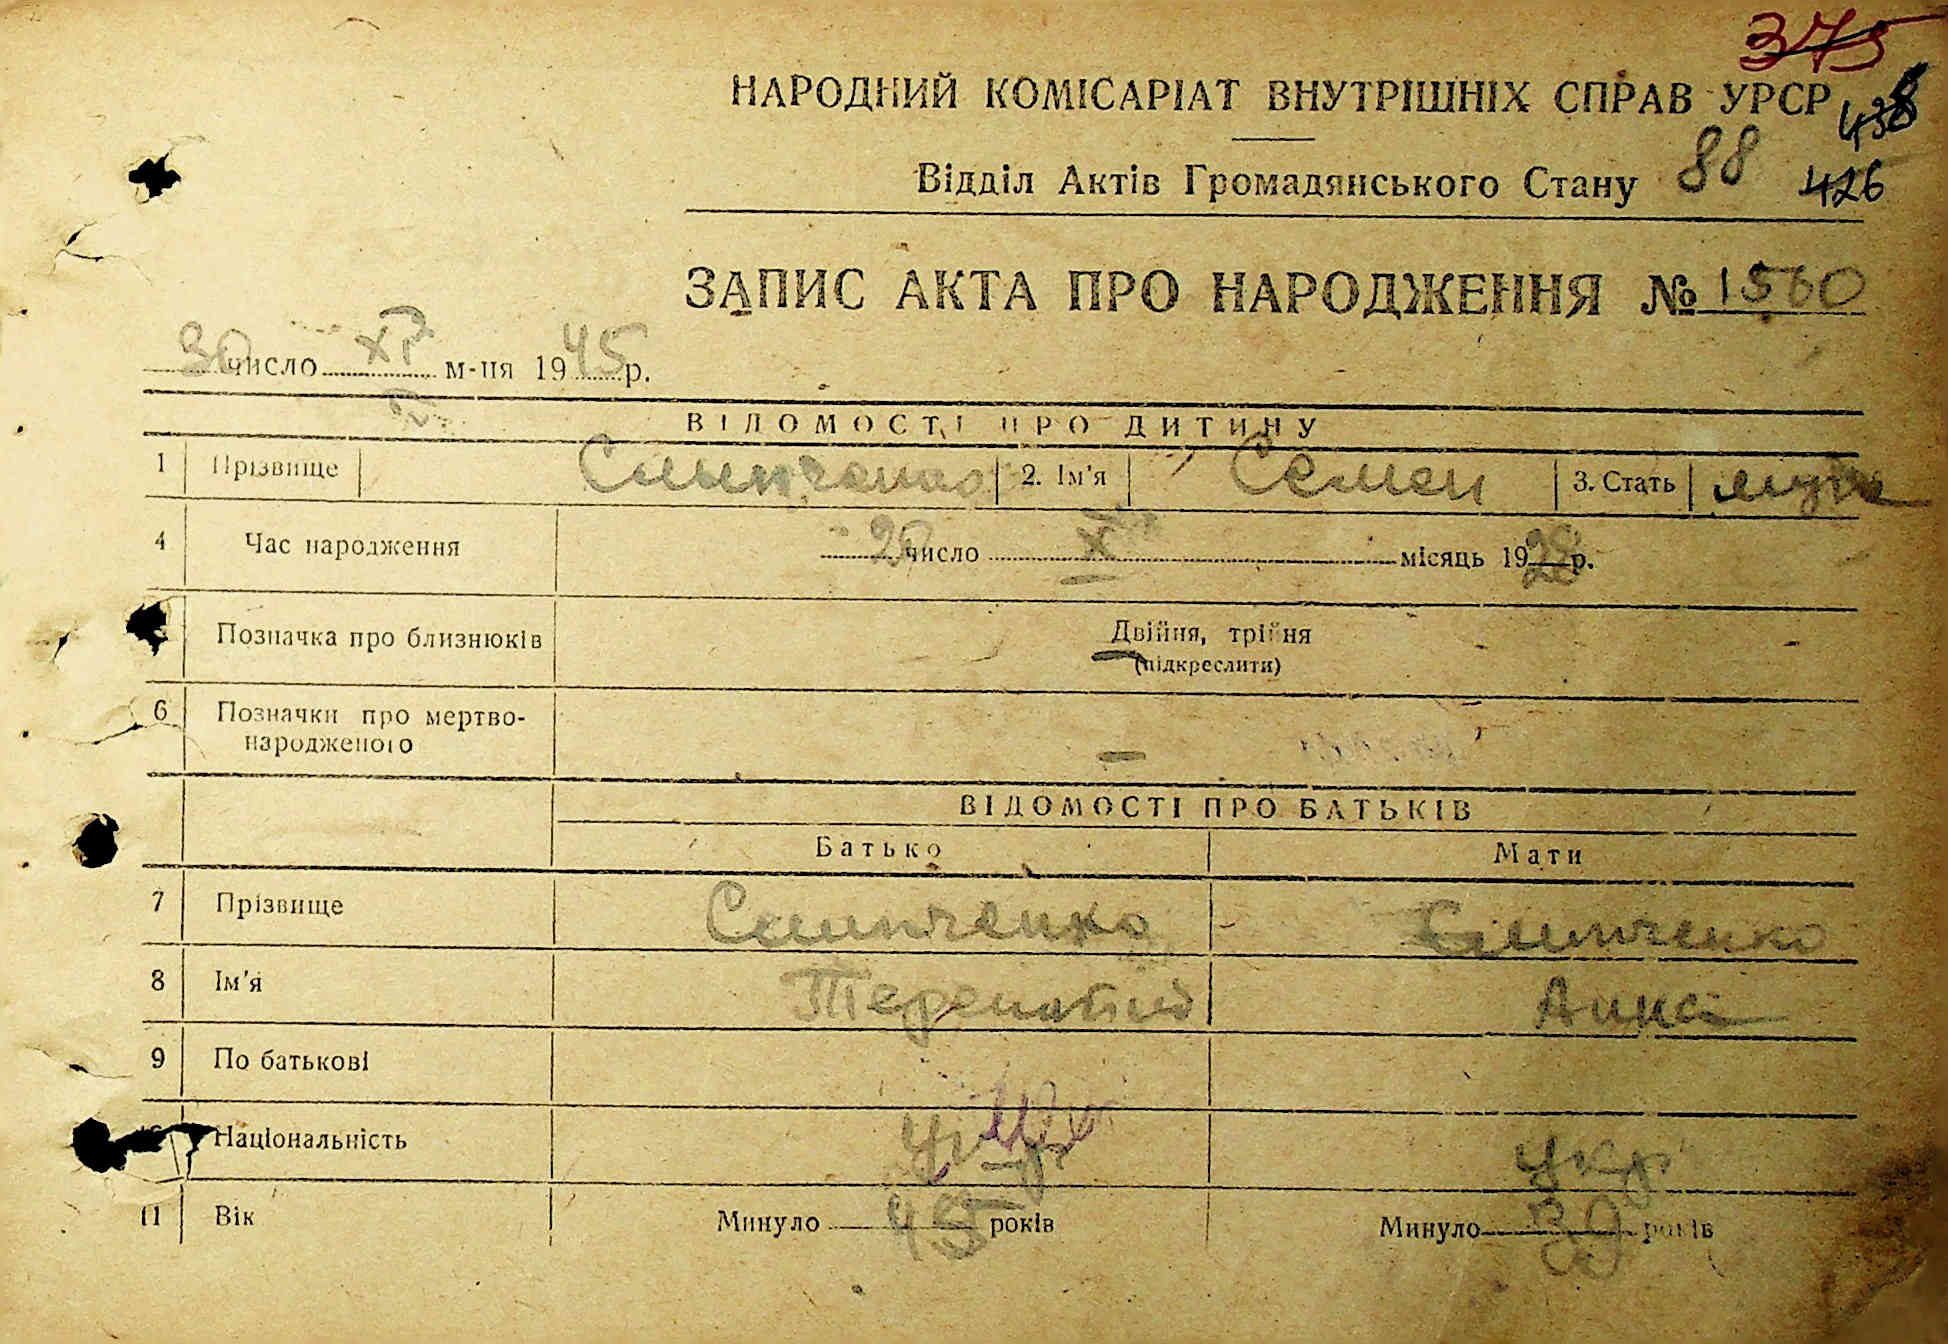 375
НАРОДНИЙ КОМІСАРІАТ ВНУТРІШНІХ СПРАВ УРСР
438
Відділ Актів Громадянського Стану 88 426
ЗАПИС АКТА ПРО НАРОДЖЕННЯ № 1560
30 число XI м-ця 1945 р.
ВІДОМОСТІ ПРО ДИТИНУ
1 Прізвище 2. Ім'я Семен 3. Стать муж
4 Час народження 20 число X місяць 1928 р.
Позначка про близнюків Двійня, трійня
(підкреслити)
6 Позначки про мертво-
народженого —
ВІДОМОСТІ ПРО БАТЬКІВ
Батько Мати
7 Прізвище
8 Ім'я Терентий Анна
9 По батькові
10 Національність укр укр
11 Вік Минуло 45 років Минуло 39 років